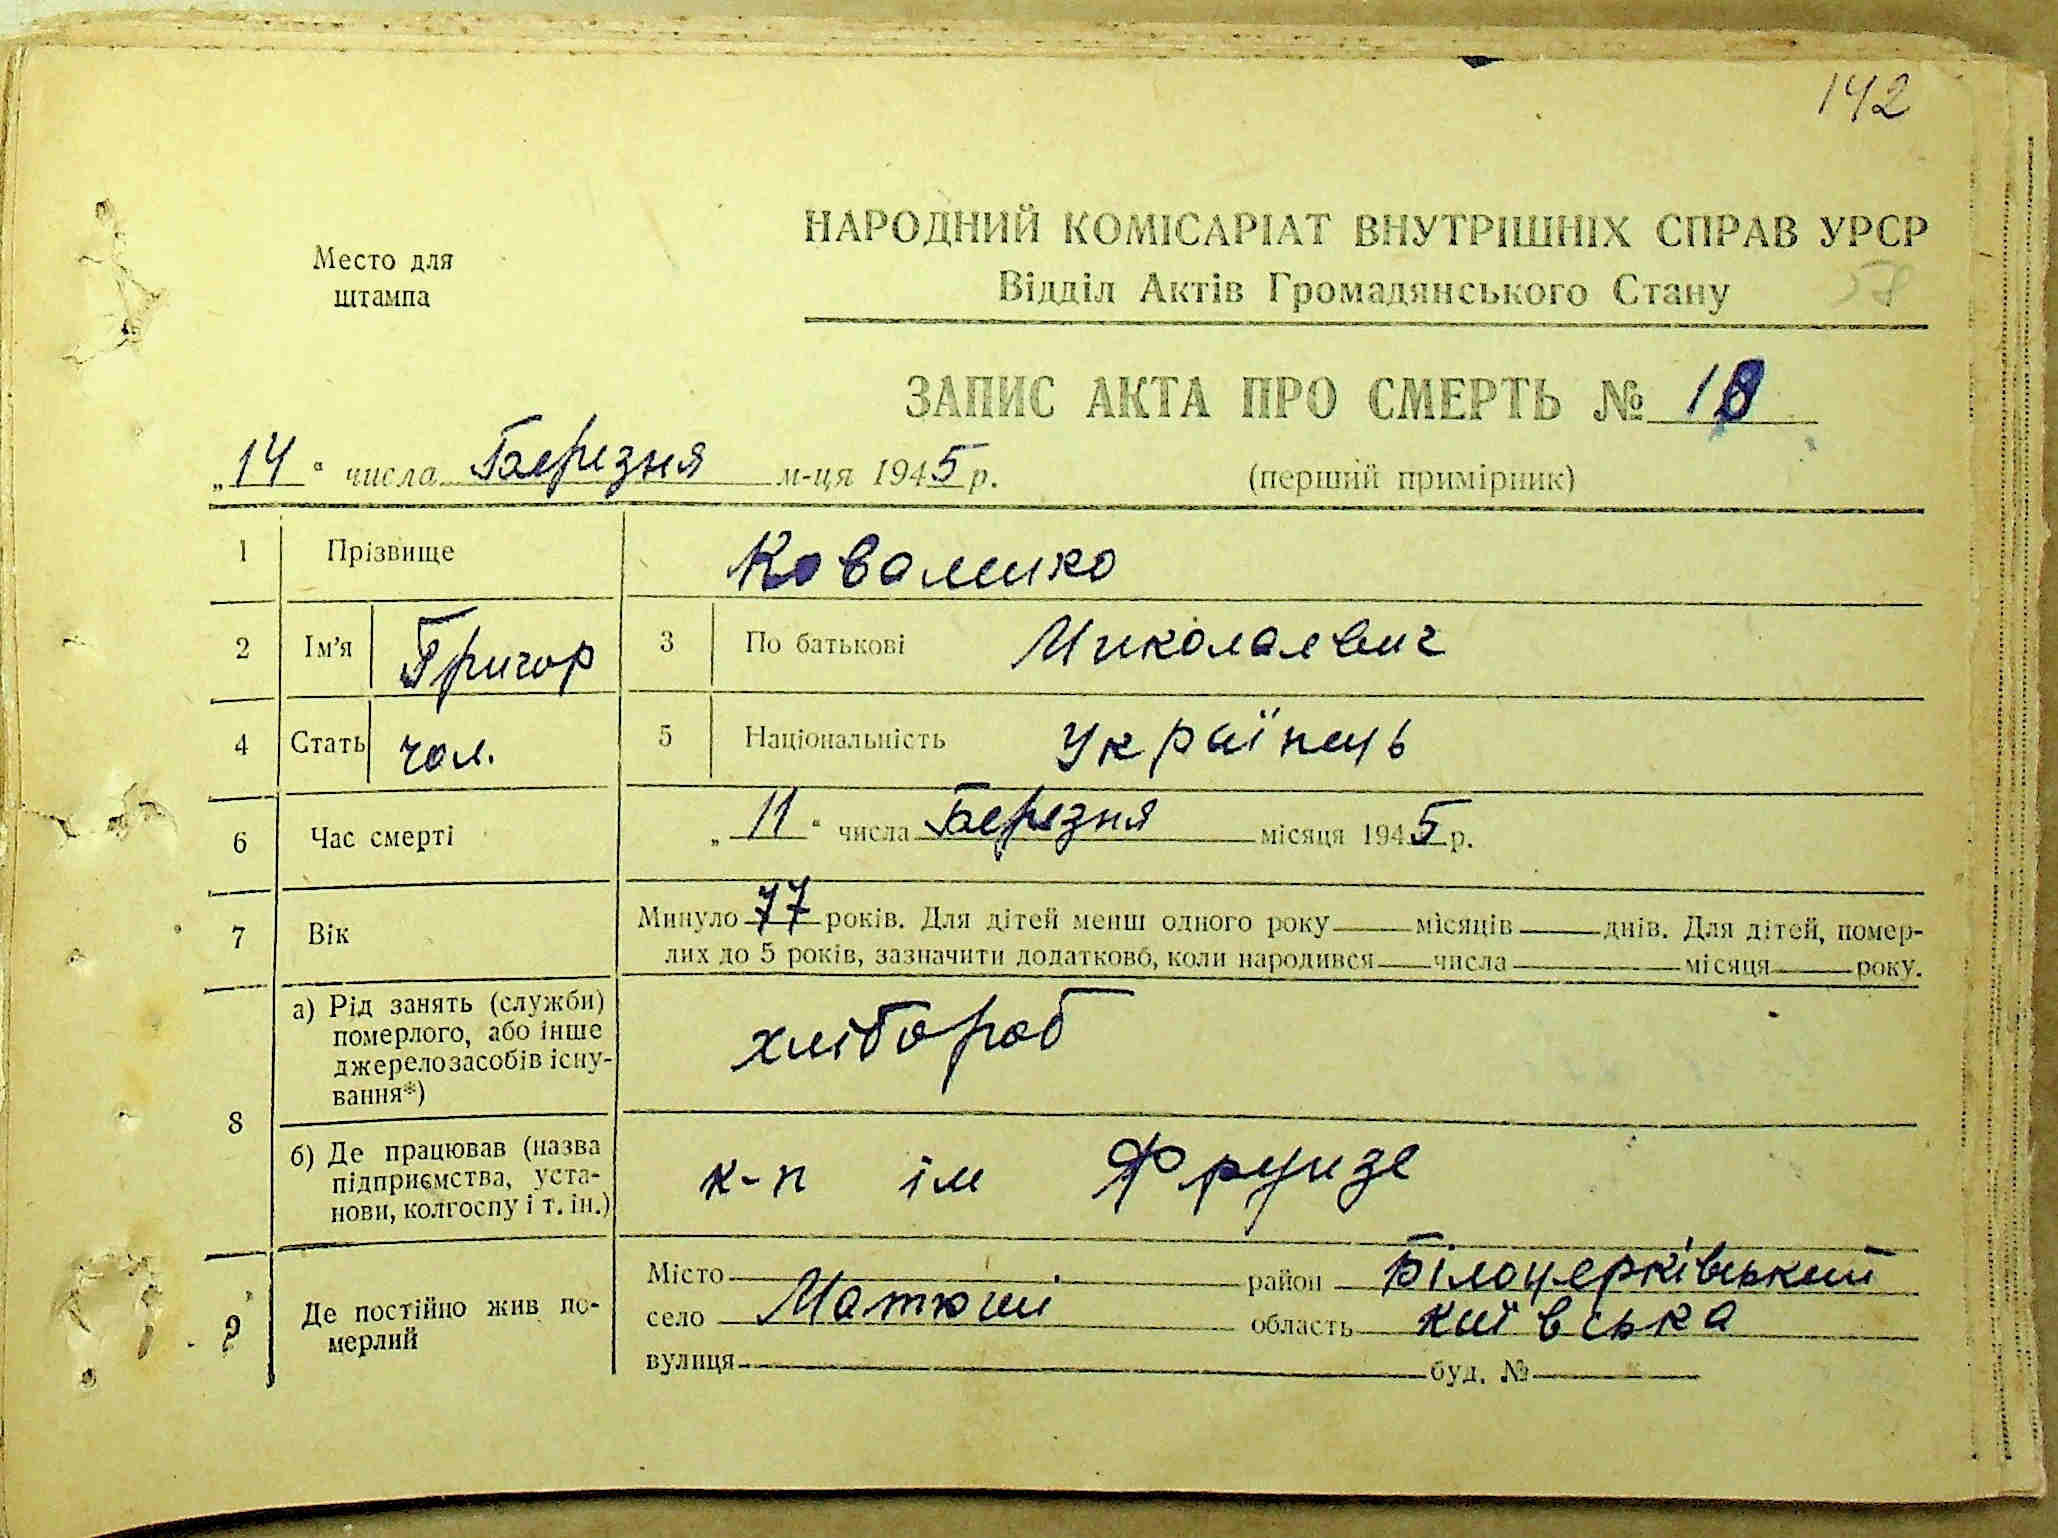 142
НАРОДНИЙ КОМІСАРІАТ ВНУТРІШНІХ СПРАВ УРСР
Место для
штампа
Відділ Актів Громадянського Стану
58
ЗАПИС АКТА ПРО СМЕРТЬ № 18
„14“ числа Березня м-ця 1945 р.
(перший примірник)
1 Прізвище Коваленко
2 Ім’я Григор 3 По батькові Миколаевич
4 Стать чол. 5 Національність Українець
6 Час смерті „11“ числа Березня місяця 1945 р.
7 Вік Минуло 77 років. Для дітей менш одного року місяців днів. Для дітей, помер-
лих до 5 років, зазначити додатково, коли народився числа місяця року.
8 а) Рід занять (служби)
померлого, або інше
джерело засобів існу-
вання*)
хлібороб
б) Де працював (назва
підприємства, уста-
нови, колгоспу і т. ін.)
к-п ім Фрунзе
9 Де постійно жив по-
мерлий
Місто район Білоцерківський
село Матюши область київська
вулиця буд. №